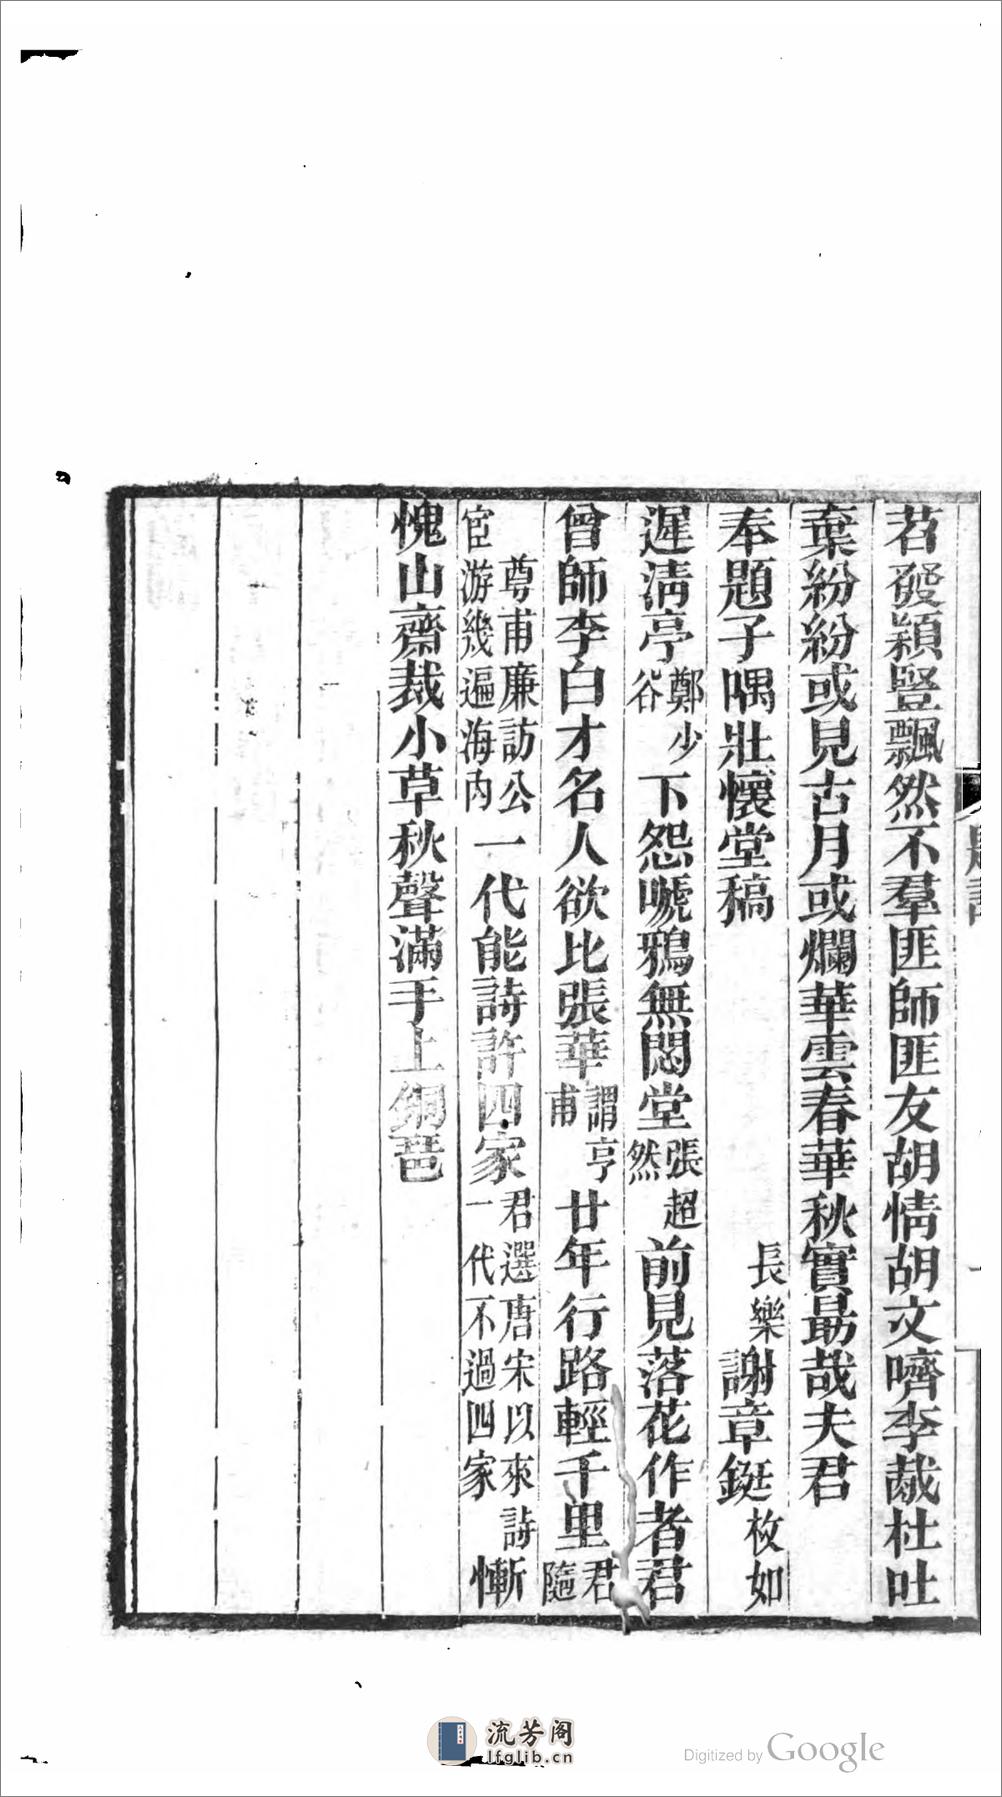 苕發穎豎飄然不羣匪師匪友胡情胡文嚌李胾杜吐
棄紛紛或見古月或爛華雲春華秋實勗哉夫君
奉題子隅壯懷堂稿
長樂謝章鋌枚如
遲淸亭鄭少谷下怨嗁鴉無悶堂張超然前見落花作者君
曾師李白才名人欲比張華謂亨甫廿年行路輕千里君隨
尊甫廉訪公宦游幾遍海內一代能詩許四家君選唐宋以來詩一代不過四家慚
愧山齋裁小草秋聲滿手上銅琶
流芳阁
lfglib.cn
Digitized by Google